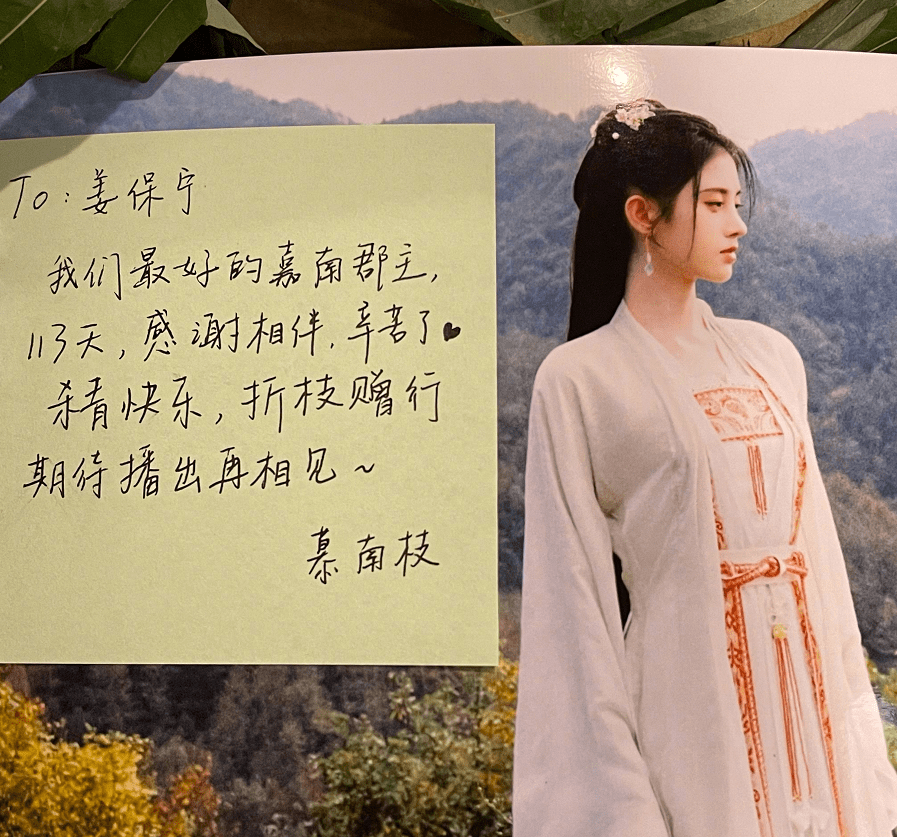 To:姜保宁
我们最好的嘉南郡主,
113天,感谢相伴.辛苦了♥
杀青快乐,折枝赠行
期待播出再相见~
慕南枝